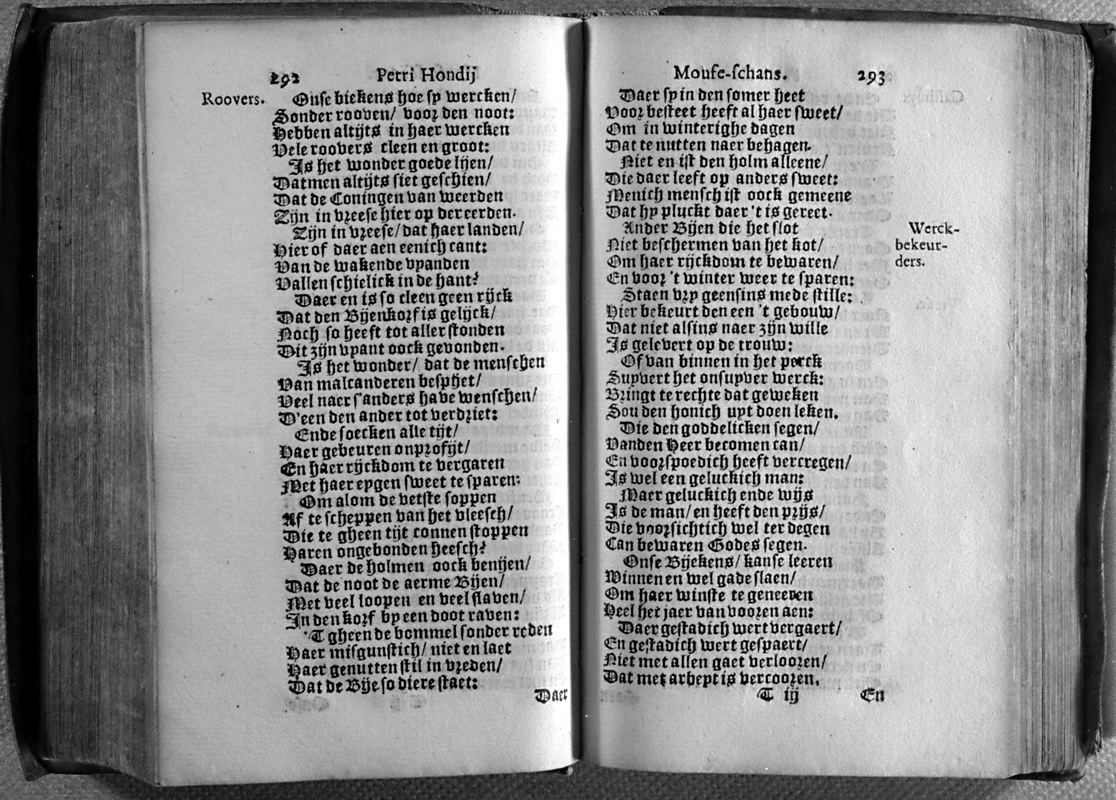 292 Petri Hondij
Roovers. Onse biekens hoe sy wercken/
Sonder rooven/ voor den noot:
Hebben altijts in haer wercken
Vele roovers cleen en groot:
Is het wonder goede lijen/
Datmen altijts siet geschien/
Dat de Coningen van weerden
Zijn in vreese hier op der eerden.
Zijn in vreese/ dat haer landen/
Hier of daer aen eenich cant:
Van de wakende vyanden
Vallen schielick in de hant?
Daer en is so cleen geen rijck
Dat den Bijenkorf is gelijck/
Noch so heeft tot aller stonden
Dit zijn vpant oock gevonden.
Is het wonder/ dat de menschen
Van malcanderen bespijet/
Veel naer s'anders have wenschen/
D'een den ander tot verdriet:
Ende soecken alle tijt/
Haer gebeuren onprofijt/
En haer rijckdom te vergaren
Met haer eygen sweet te sparen:
Om alom de vetste soppen
Af te scheppen van het vleesch/
Die te gheen tijt connen stoppen
Haren ongebonden heesch?
Daer de holmen oock benijen/
Dat de noot de aerme Bijen/
Met veel loopen en veel slaven/
In den korf by een doot raven:
T gheen de bommel sonder reden
Haer misgunstich/ niet en laet
Haer genutten stil in vreden/
Dat de Bije so diere staet:
Daer
Mouse-schans. 293
Daer sy in den somer heet
Voor besteet heeft al haer sweet/
Om in winterighe dagen
Dat te nutten naer behagen.
Niet en ist den holm alleene/
Die daer leeft op anders sweet:
Menich mensch ist oock gemeene
Dat hy pluckt daer 't is gereet.
Ander Bijen die het slot
Niet beschermen van het kot/
Om haer rijckdom te bewaren/
En voor 't winter weer te sparen:
Werck-
bekeur-
ders.
Staen vry geensins mede stille:
Hier bekeurt den een 't gebouw/
Dat niet alsins naer zijn wille
Is gelevert op de trouw:
Of van binnen in het perck
Suyvert het onsuyver werck:
Bringt te rechte dat geweken
Sou den honich uyt doen leken.
Die den goddelicken segen/
Vanden Heer becomen can/
En voorspoedich heeft vercregen/
Is wel een geluckich man:
Maer geluckich ende wijs
Is de man/ en heeft den prijs/
Die voorsichtich wel ter degen
Can bewaren Godes segen.
Onse Bijekens/ kanse leeren
Winnen en wel gade slaen/
Om haer winste te geneeren
Heel het jaer van vooren aen:
Daer gestadich wert vergaert/
En gestadich wert gespaert/
Niet met allen gaet verlooren/
Dat met arbeyt is vercooren.
T iij En